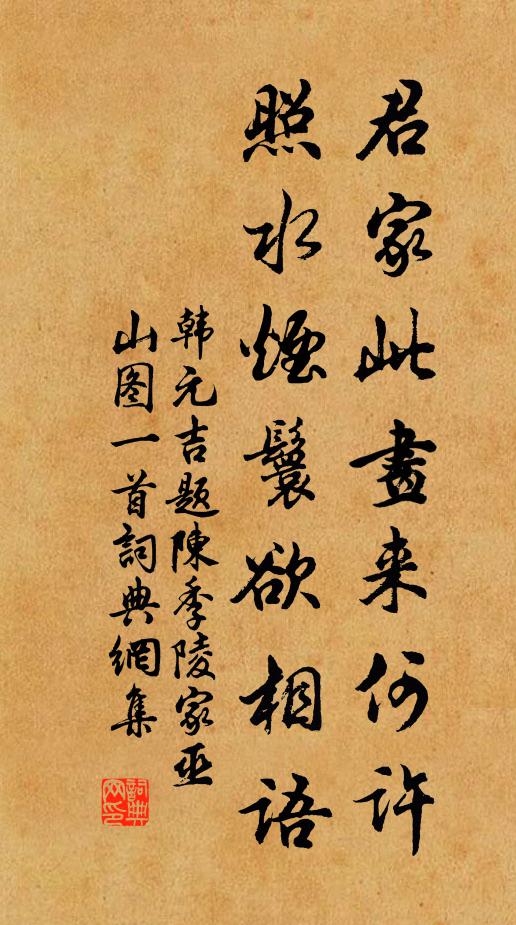 君家此畫来何许
照水煙鬟欲相语
韩元吉题陳季陵家巫
山图一首詞典網集
詞典
网印